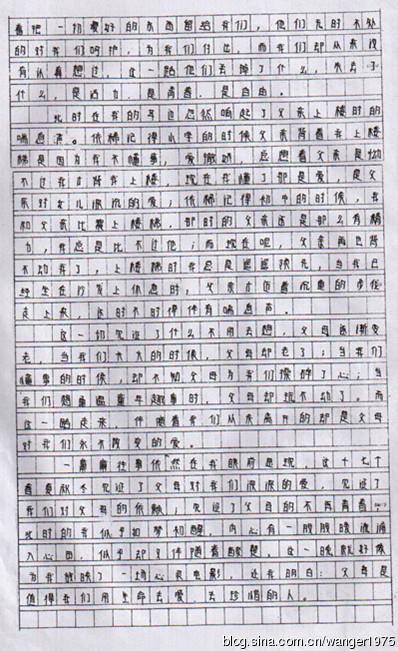 着把一切最好的东西留给我们，他们无时不处
的对我们呵护，为我们付出，而我们却从来没
有认真想过，这一路他们丢掉了什么，失去了
什么，是活力，是青春，是自由。
此时在我的耳边忽然响起了父亲上楼时的
喘息声。依稀记得小学的时候父亲背着我上楼
梯是因为我不懂事，爱撒娇，总想着父亲是怕
不过我才背我上楼，现在我懂了那是爱，是父
亲对女儿深沉的爱；依稀记得初中的时候，我
和父亲比赛上楼梯，那时的父亲还是那么有精
力，我总是比不过他；而现在呢，父亲再也背
不动我了，上楼梯时我总是遥遥领先，当我已
经坐在沙发上休息时，父亲才迈着沉重的步伐
走上来，这时不时得伴有喘息声。
这一切见证了什么不用去想，父母逐渐变
老，当我们长大的时候，父母却老了；当我们
懂事的时候，却不知父母为我们操碎了心；当
我们想重温童年趣事时，父母却玩不动了。而
这一路走来，伴随着我们从未离开的却是父母
对我们永不改变的爱。
一幕幕往事依然在我眼前显现，这十七个
春夏秋冬见证了父母对我们浓浓的爱，见证了
我们对父母的依赖，见证了父母的不再青春。
此时的我似乎如梦初醒，内心有一股股暖流涌
入心田，似乎却又伴随着酸楚。这一晚就好像
为我放映了一场心灵电影，让我明白：父母是
值得我们用生命去爱，去珍惜的人。
blog.sina.com.cn/wanger1975